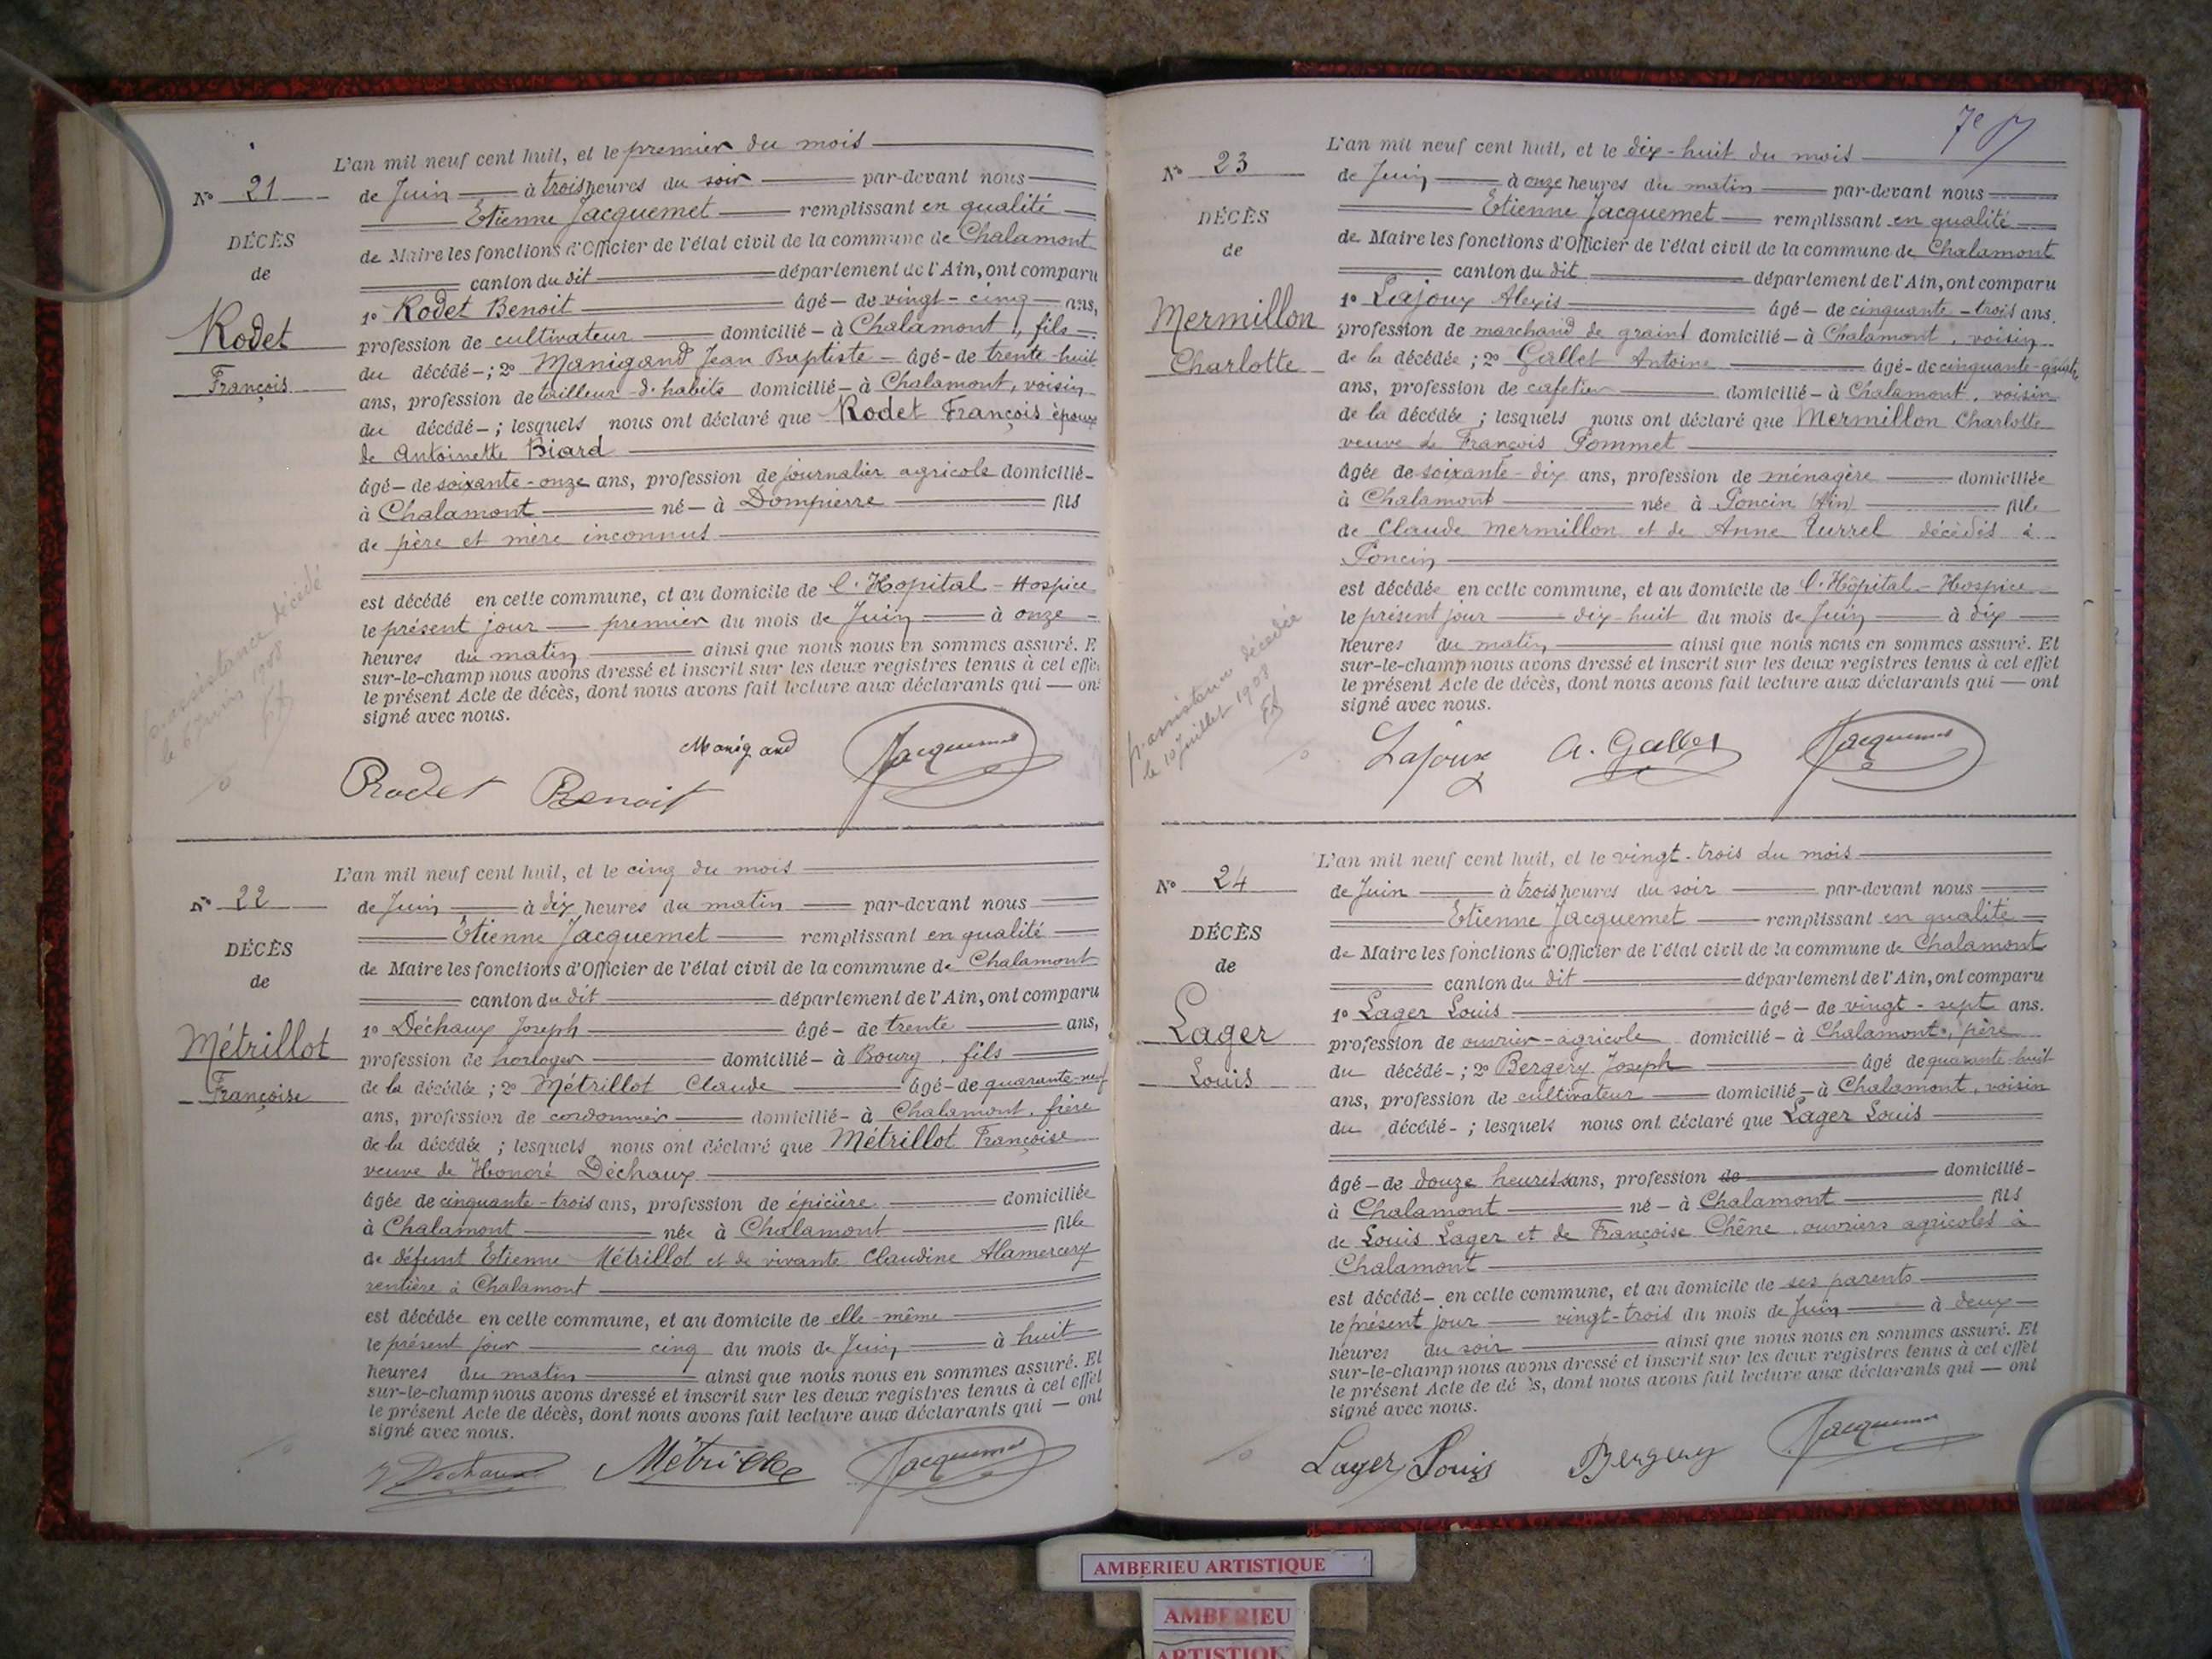 L'an mil neuf cent huit, et le premier du mois
N° 21
de Juin à trois heures du soir par-devant nous
Etienne Jacquemet remplissant en qualité
DÉCÈS
de Maire les fonctions d'Officier de l'état civil de la commune de Chalamont
de
canton du dit département de l'Ain, ont comparu
1° Rodet Benoit âgé de vingt-cinq ans,
Rodet
profession de cultivateur domicilié à Chalamont, fils
François
du décédé; 2° Manigand Jean Baptiste âgé de trente-huit
ans, profession de tailleur d'habits domicilié à Chalamont, voisin
du décédé; lesquels nous ont déclaré que Rodet François époux
de Antoinette Biard
âgé de soixante-onze ans, profession de journalier agricole domicilié
à Chalamont né à Dompierre fils
de père et mère inconnus
est décédé en cette commune, et au domicile de l'Hopital-Hospice
le présent jour premier du mois de Juin à onze
heures du matin ainsi que nous nous en sommes assuré. E
sur-le-champ nous avons dressé et inscrit sur les deux registres tenus à cet effe
le présent Acte de décès, dont nous avons fait lecture aux déclarants qui ont
signé avec nous.
assistance décédé
le 6 juin 1908
Manigand Jacquemet
Rodet Benoit
L'an mil neuf cent huit, et le cinq du mois
N° 22
de Juin à dix heures du matin par-devant nous
Etienne Jacquemet remplissant en qualité
DÉCÈS
de Maire les fonctions d'Officier de l'état civil de la commune de Chalamont
de
canton du dit département de l'Ain, ont comparu
1° Déchaux Joseph âgé de trente ans,
Métrillot
profession de horloger domicilié à Bourg, fils
Françoise
de la décédée; 2° Métrillot Claude âgé de quarante-neuf
ans, profession de cordonnier domicilié à Chalamont, frère
de la décédée; lesquels nous ont déclaré que Métrillot Françoise
veuve de Honoré Déchaux
âgée de cinquante-trois ans, profession de épicière domiciliée
à Chalamont née à Chalamont fille
de défunt Etienne Métrillot et de vivante Claudine Alamercery
rentière à Chalamont
est décédée en cette commune, et au domicile de elle-même
le présent jour cinq du mois de Juin à huit
heures du matin ainsi que nous nous en sommes assuré. Et
sur-le-champ nous avons dressé et inscrit sur les deux registres tenus à cet effet
le présent Acte de décès, dont nous avons fait lecture aux déclarants qui ont
signé avec nous.
J Dechaux Métrillot Jacquemet
7e
L'an mil neuf cent huit, et le dix-huit du mois
N° 23
de Juin à onze heures du matin par-devant nous
Etienne Jacquemet remplissant en qualité
DÉCÈS
de Maire les fonctions d'Officier de l'état civil de la commune de Chalamont
de
canton du dit département de l'Ain, ont comparu
1° Lajoux Alexis âgé de cinquante-trois ans.
Mermillon
profession de marchand de grains domicilié à Chalamont, voisin
Charlotte
de la décédée; 2° Gallet Antoine âgé de cinquante-quatre
ans, profession de cafetier domicilié à Chalamont, voisin
de la décédée; lesquels nous ont déclaré que Mermillon Charlotte
veuve de François Pommet
âgée de soixante-dix ans, profession de ménagère domiciliée
à Chalamont née à Poncin (Ain) fille
de Claude Mermillon et de Anne Turrel décédés à
Poncin
est décédée en cette commune, et au domicile de l'Hôpital-Hospice
le présent jour dix-huit du mois de Juin à dix
heures du matin ainsi que nous nous en sommes assuré. Et
sur-le-champ nous avons dressé et inscrit sur les deux registres tenus à cet effet
le présent Acte de décès, dont nous avons fait lecture aux déclarants qui ont
signé avec nous.
assistance décédée
le 10 Juillet 1908
Lajoux A. Gallet Jacquemet
L'an mil neuf cent huit, et le vingt-trois du mois
N° 24
de Juin à trois heures du soir par-devant nous
Etienne Jacquemet remplissant en qualité
DÉCÈS
de Maire les fonctions d'Officier de l'état civil de la commune de Chalamont
de
canton du dit département de l'Ain, ont comparu
1° Lager Louis âgé de vingt-sept ans.
Lager
profession de ouvrier-agricole domicilié à Chalamont, père
Louis
du décédé; 2° Bergery Joseph âgé de quarante-huit
ans, profession de cultivateur domicilié à Chalamont, voisin
du décédé; lesquels nous ont déclaré que Lager Louis
âgé de douze heures ans, profession de domicilié
à Chalamont né à Chalamont fils
de Louis Lager et de Françoise Chêne, ouvriers agricoles à
Chalamont
est décédé en cette commune, et au domicile de ses parents
le présent jour vingt-trois du mois de Juin à deux
heures du soir ainsi que nous nous en sommes assuré. Et
sur-le-champ nous avons dressé et inscrit sur les deux registres tenus à cet effet
le présent Acte de décès, dont nous avons fait lecture aux déclarants qui ont
signé avec nous.
Lager Louis Bergery Jacquemet
AMBERIEU ARTISTIQUE
AMBERIEU
ARTISTIQUE